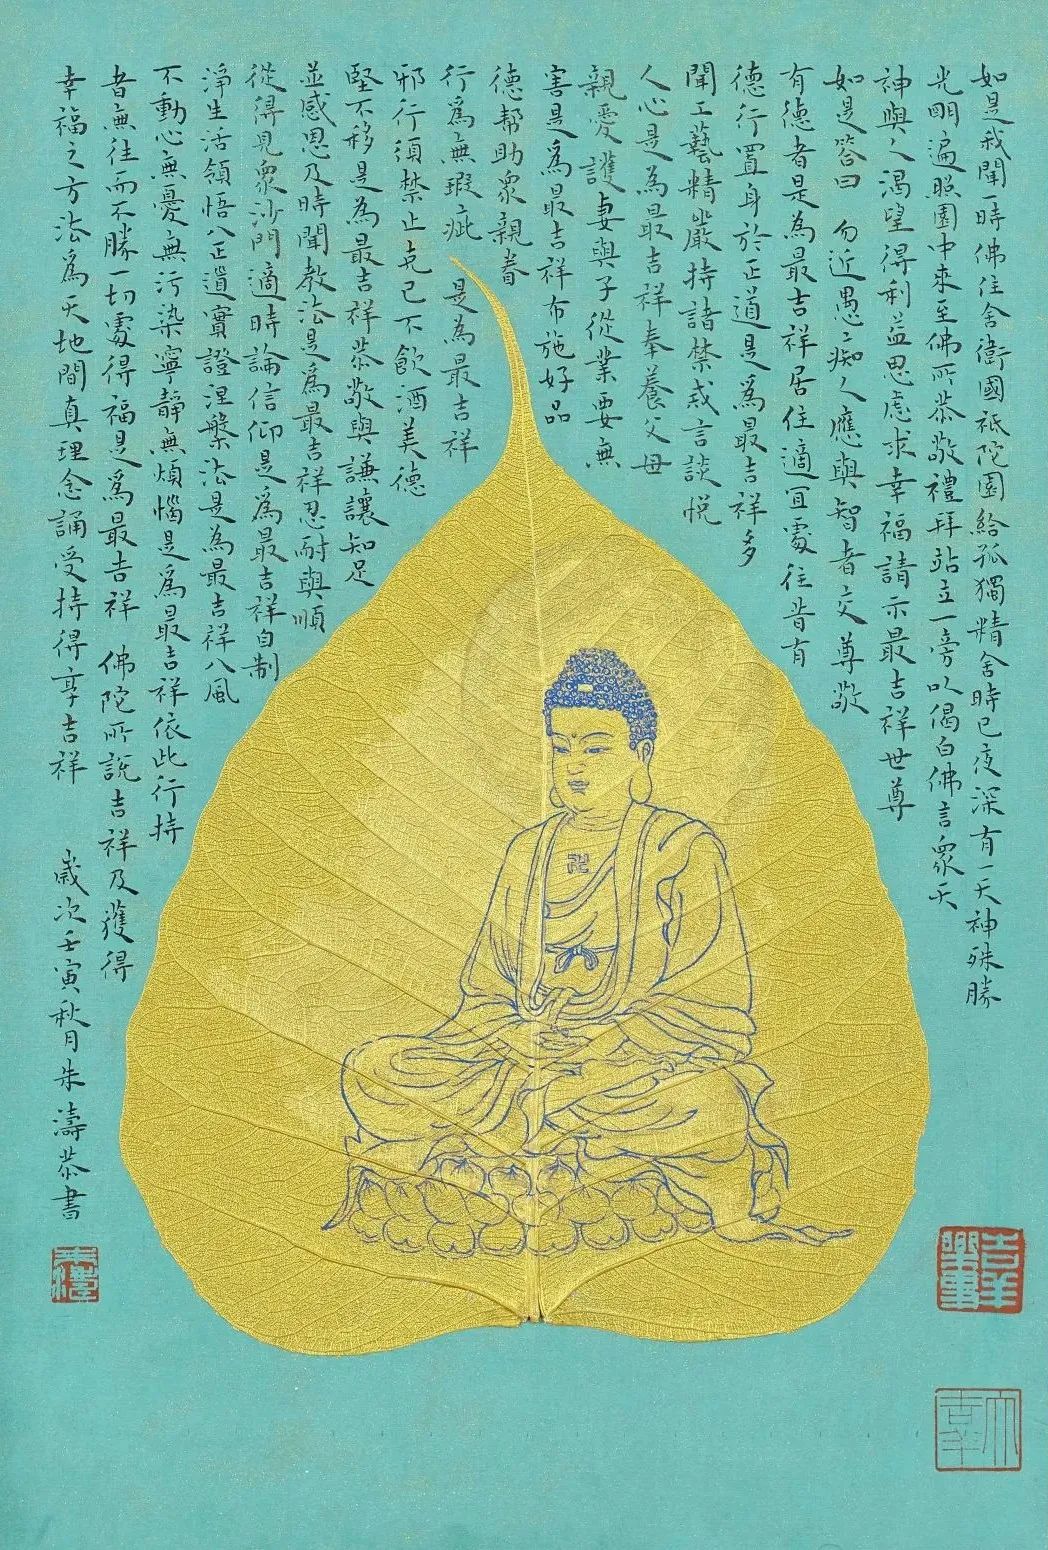 如是我聞一時佛住舍衛國祇陀園給孤獨精舍時已夜深有一天神殊勝
光明遍照園中來至佛所恭敬禮拜站立一旁以偈白佛言眾天
神與人渴望得利益思慮求幸福請示最吉祥世尊
如是答曰 勿近愚癡人應與智者交尊敬
有德者是為最吉祥居住適宜處往昔有
德行置身於正道是為最吉祥多
聞工藝精嚴持諸禁戒言談悅
人心是為最吉祥奉養父母
親愛護妻與子從業要無
害是為最吉祥布施好品
德幫助眾親眷
行為無瑕疵 是為最吉祥
邪行須禁止克己不飲酒美德
堅不移是為最吉祥恭敬與謙讓知足
並感恩及時聞教法是為最吉祥忍耐與順
從得見眾沙門適時論信仰是為最吉祥自制
淨生活領悟八正道實證涅槃法是為最吉祥八風
不動心無憂無污染寧靜無煩惱是為最吉祥依此行持
者無往而不勝一切處得福是為最吉祥 佛陀所說吉祥及獲得
幸福之方法為天地間真理念誦受持得享吉祥 歲次壬寅秋月朱濤恭書
卍
吉羊
樂事
大
吉羊